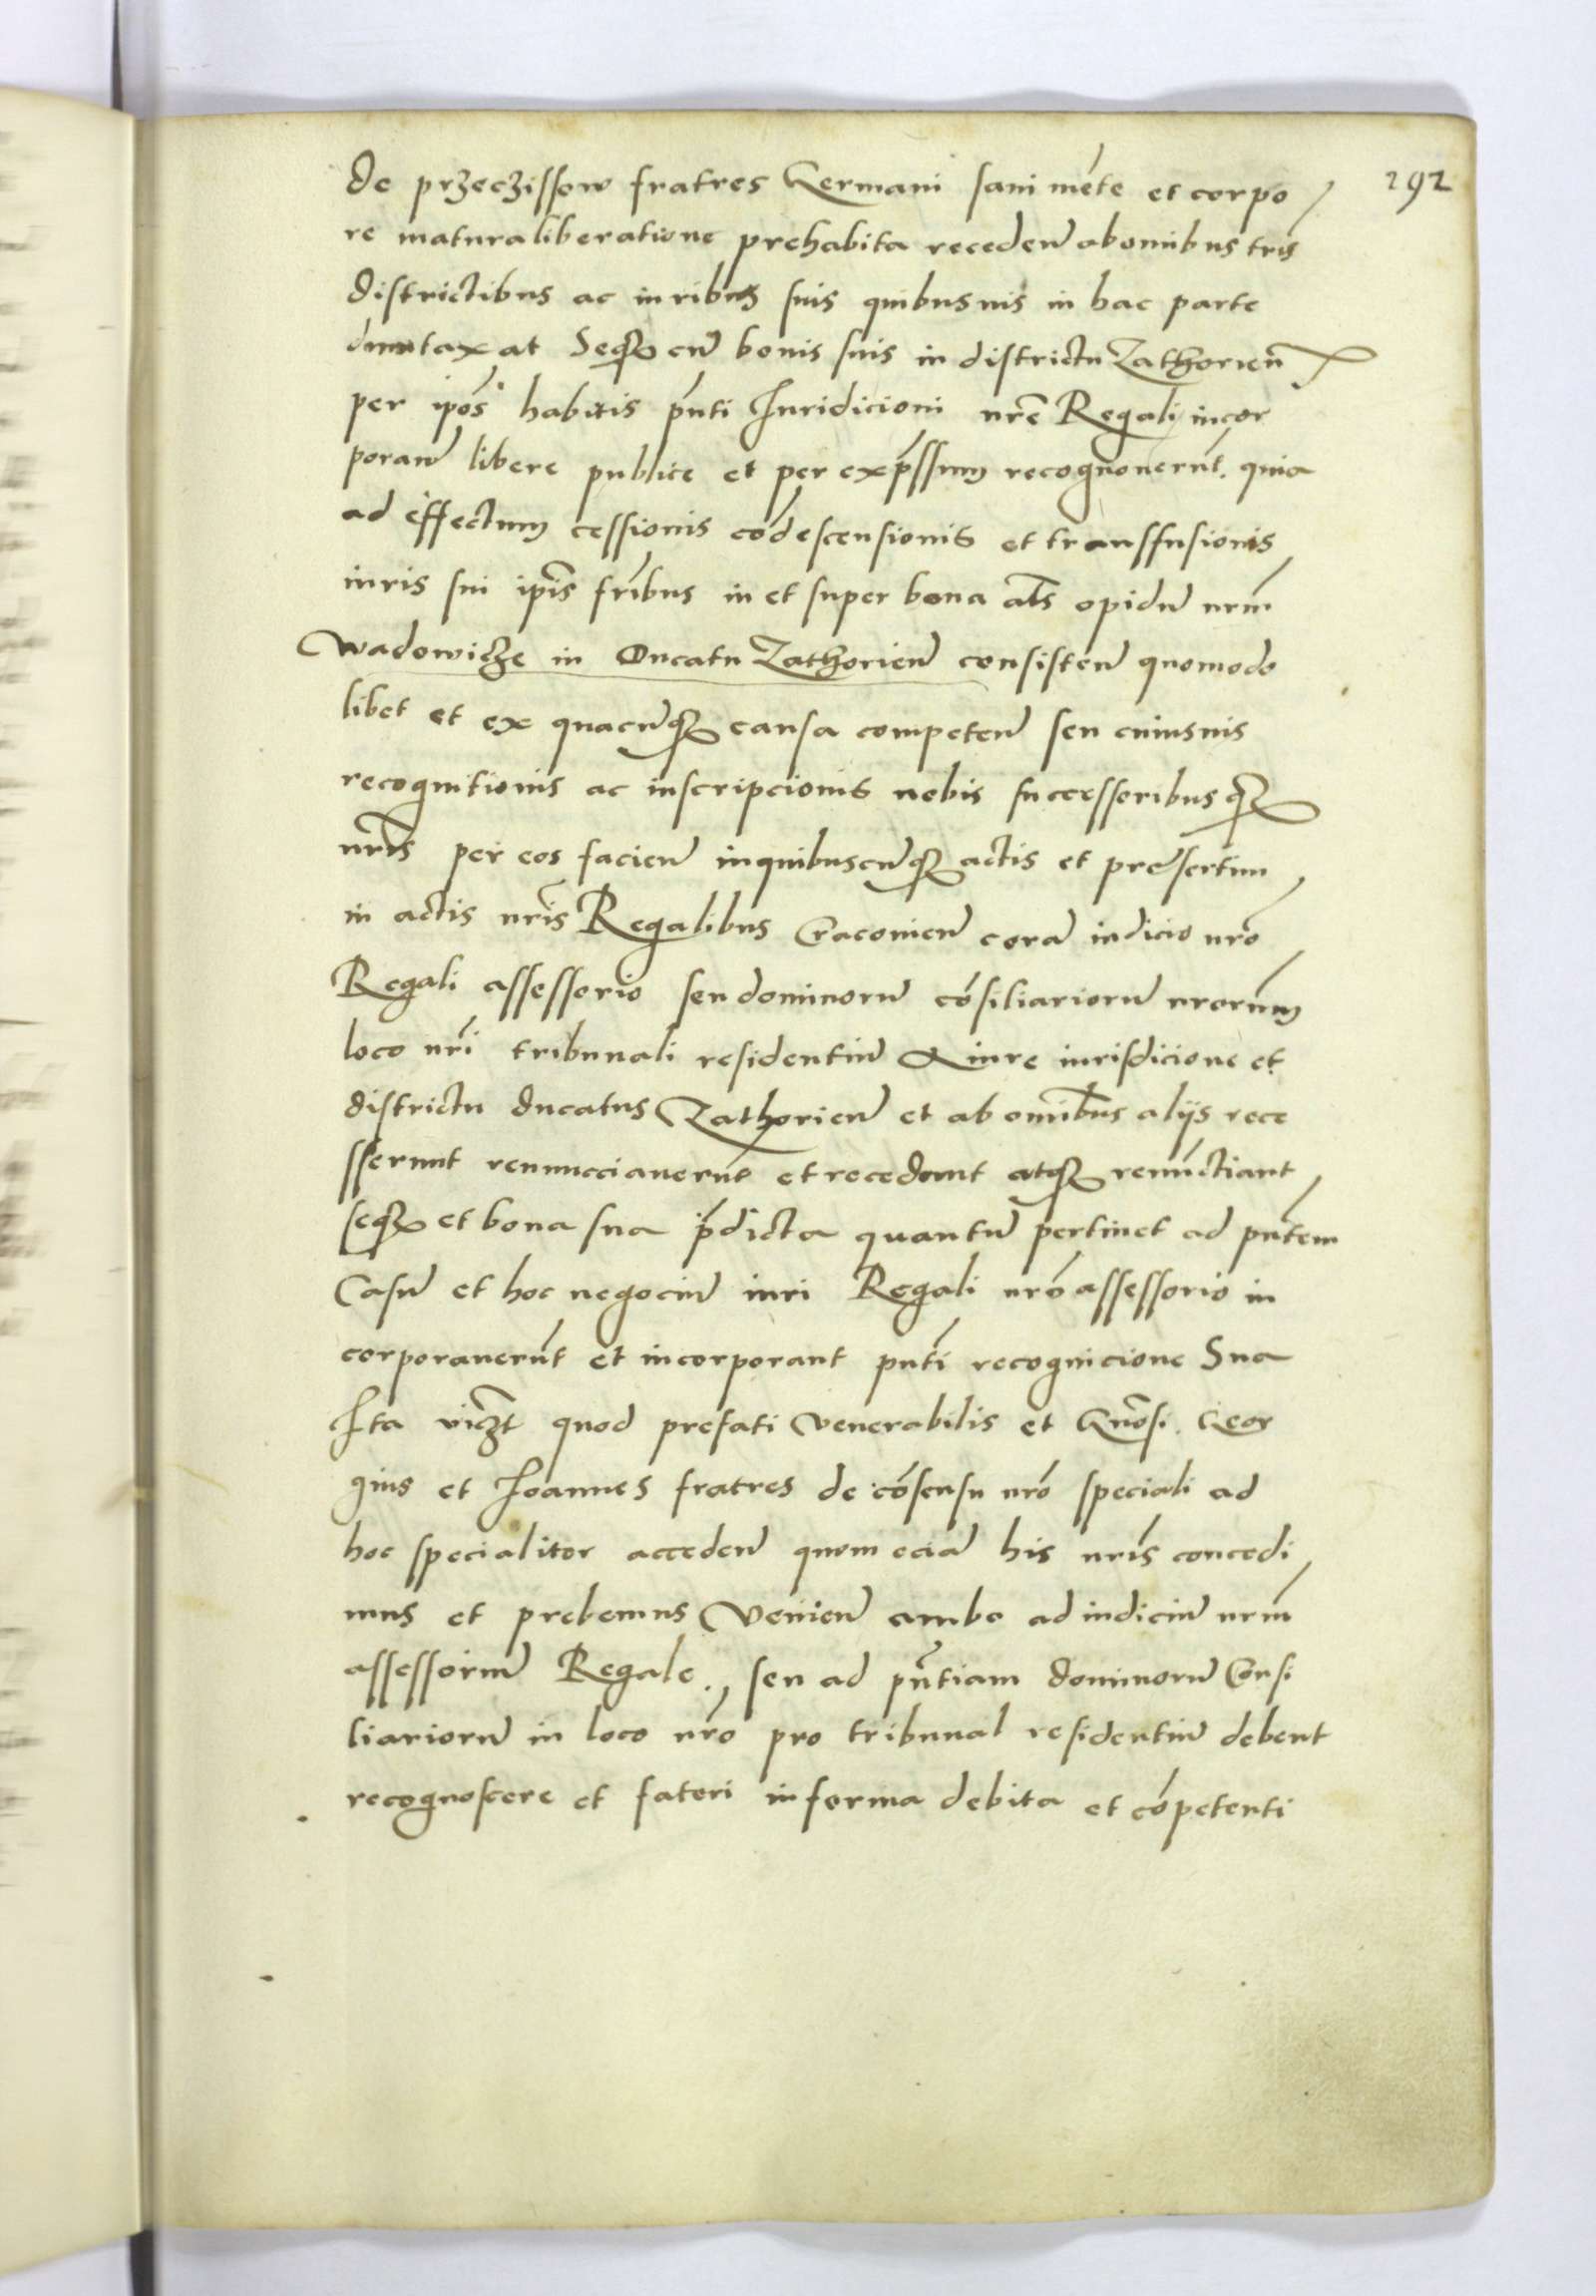 292
de przeczissow fratres Germani sani mēte et corpo
re matura liberatione prehabita recedeñ ab omibus tris
districtibus ac iuribus suis quibusuis in hac parte
dumtaxat Seqꝫ cū bonis suis in districtu Zathorieñ
per ip̄os habitis pn̄ti Juridicioni nrē Regali incor
porañ libere publice et per exp̄ssum recognouerūt. quia
ad effectum cessionis cōdescensionis et transfusionis
iuris sui ip̄is fr̄ibus in et super bona al̄s opidū nrm̄
Wadowicze in Ducatu Zathorieñ consisteñ quomodo
libet et ex quacūqꝫ causa competeñ seu cuiusuis
recognitionis ac inscripcionis nobis successoribusqꝫ
nrīs per eos facieñ in quibuscūqꝫ actis et presertim
in actis nrīs Regalibus Cracouieñ corā iudicio nrō
Regali assessorio seu dominorū cōsiliariorū nrorūm
loco nrī tribunali residentiū A iure iurisdicione et
districtu ducatus Zathorieñ et ab omībus alijs rece
sserunt renuncciauerūt et recedunt atqꝫ renūctiant
seqꝫ et bona sua p̄dicta quantū pertinet ad pn̄tem
Casū et hoc negociū iuri Regali nrō assessorio in
corporauerūt et incorporant pn̄ti recognicione Sua
Ita viczt̄ quod prefati venerabilis et Gn̄osi Geor
gius et Joannes fratres de cōsensu nrō speciali ad
hoc specialiter accedeñ quem eciā his nrīs concedi
mus et prebemus Venieñ ambo ad iudiciū nrm̄
assessoriū Regale, seu ad pn̄tiam dominorū Consi
liariorū in loco nrō pro tribunal residentiū debent
recognoscere et fateri in forma debita et cōpetenti